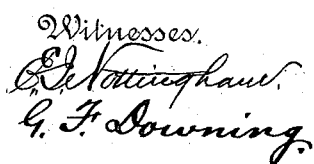 Witnesses.
E. J. Nottingham.
G. F. Downing.